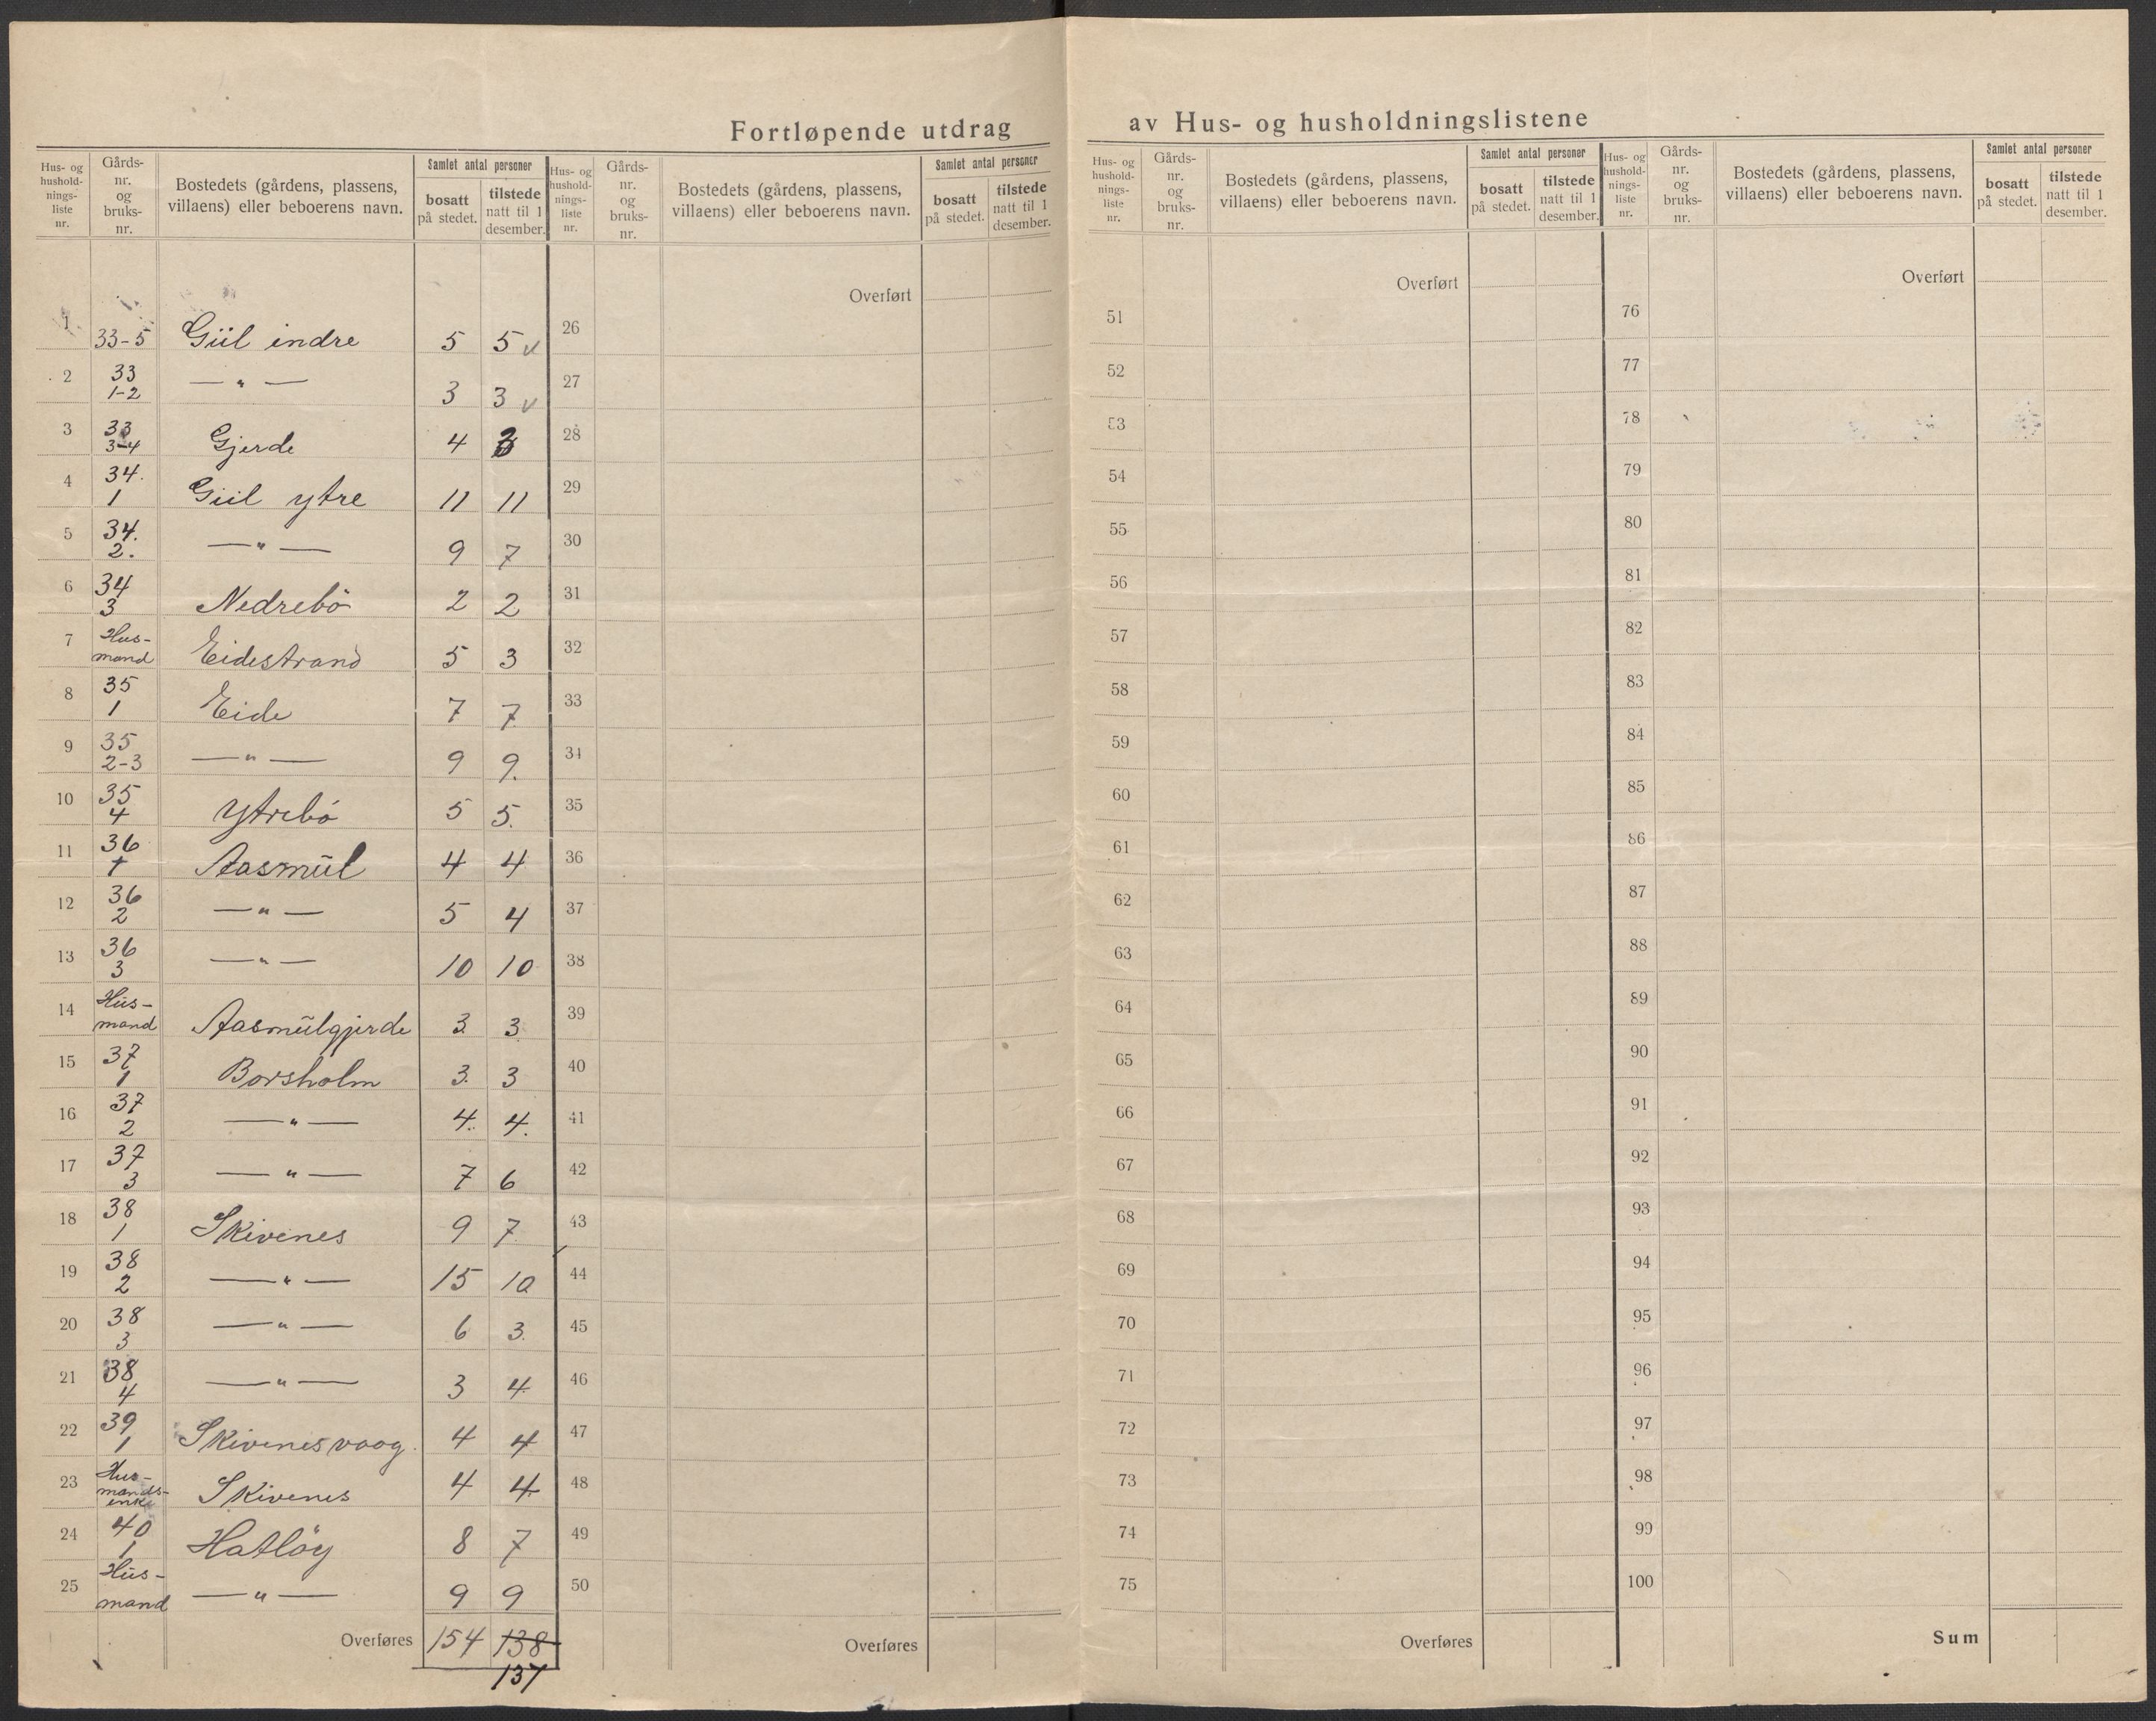 Fortløpende utdrag av Hus- og husholdningslistene
Hus- og hushold- nings- liste nr.
Gårds- nr. og bruks- nr.
Bostedets (gårdens, plassens, villaens) eller beboerens navn.
Samlet antal personer
bosatt på stedet.
tilstede natt til 1 desember.
Hus- og hushold- nings- liste nr.
Gårds- nr. og bruks- nr.
Bostedets (gårdens, plassens, villaens) eller beboerens navn.
Samlet antal personer
bosatt på stedet.
tilstede natt til 1 desember.
Hus- og hushold- nings- liste nr.
Gårds- nr. og bruks- nr.
Bostedets (gårdens, plassens, villaens) eller beboerens navn.
Samlet antal personer
bosatt på stedet.
tilstede natt til 1 desember.
Hus- og hushold- nings- liste nr.
Gårds- nr. og bruks- nr.
Bostedets (gårdens, plassens, villaens) eller beboerens navn.
Samlet antal personer
bosatt på stedet.
tilstede natt til 1 desember.
1 33-5 Giil indre 5 5 v
2 33 1-2 — " — 3 3 v
3 33 3-4 Gjerde 4 3
4 34. 1 Giil ytre 11 11
5 34. 2. — " — 9 7
6 34 3 Nedrebö 2 2
7 Hus- mand Eidestrand 5 3
8 35 1 Eide 7 7
9 35 2-3 — " — 9 9.
10 35 4 Ytrebö 5 5.
11 36 1 Aasmül 4 4
12 36 2 — " — 5 4
13 36 3 — " — 10 10
14 Hüs- mand Aasmülgjerde 3 3
15 37 1 Borsholm 3. 3
16 37 2 — " — 4. 4.
17 37 3 — " — 7 6
18 38 1 Skivenes 9 7
19 38 2 — " — 15 10
20 38 3 — " — 6 3.
21 38 4 — " — 3 4
22 39 1 Skivenesvaag. 4 4
23 Hus- mands- enke Skivenes 4 4
24 40 1 Hatlöy 8 7
25 Hüs- mand — " — 9 9
Overføres 154 138
137
Overført
26
27
28
29
30
31
32
33
34
35
36
37
38
39
40
41
42
43
44
45
46
47
48
49
50
Overføres
Overført
51
52
53
54
55
56
57
58
59
60
61
62
63
64
65
66
67
68
69
70
71
72
73
74
75
Overføres
Overført
76
77
78
79
80
81
82
83
84
85
86
87
88
89
90
91
92
93
94
95
96
97
98
99
100
Sum